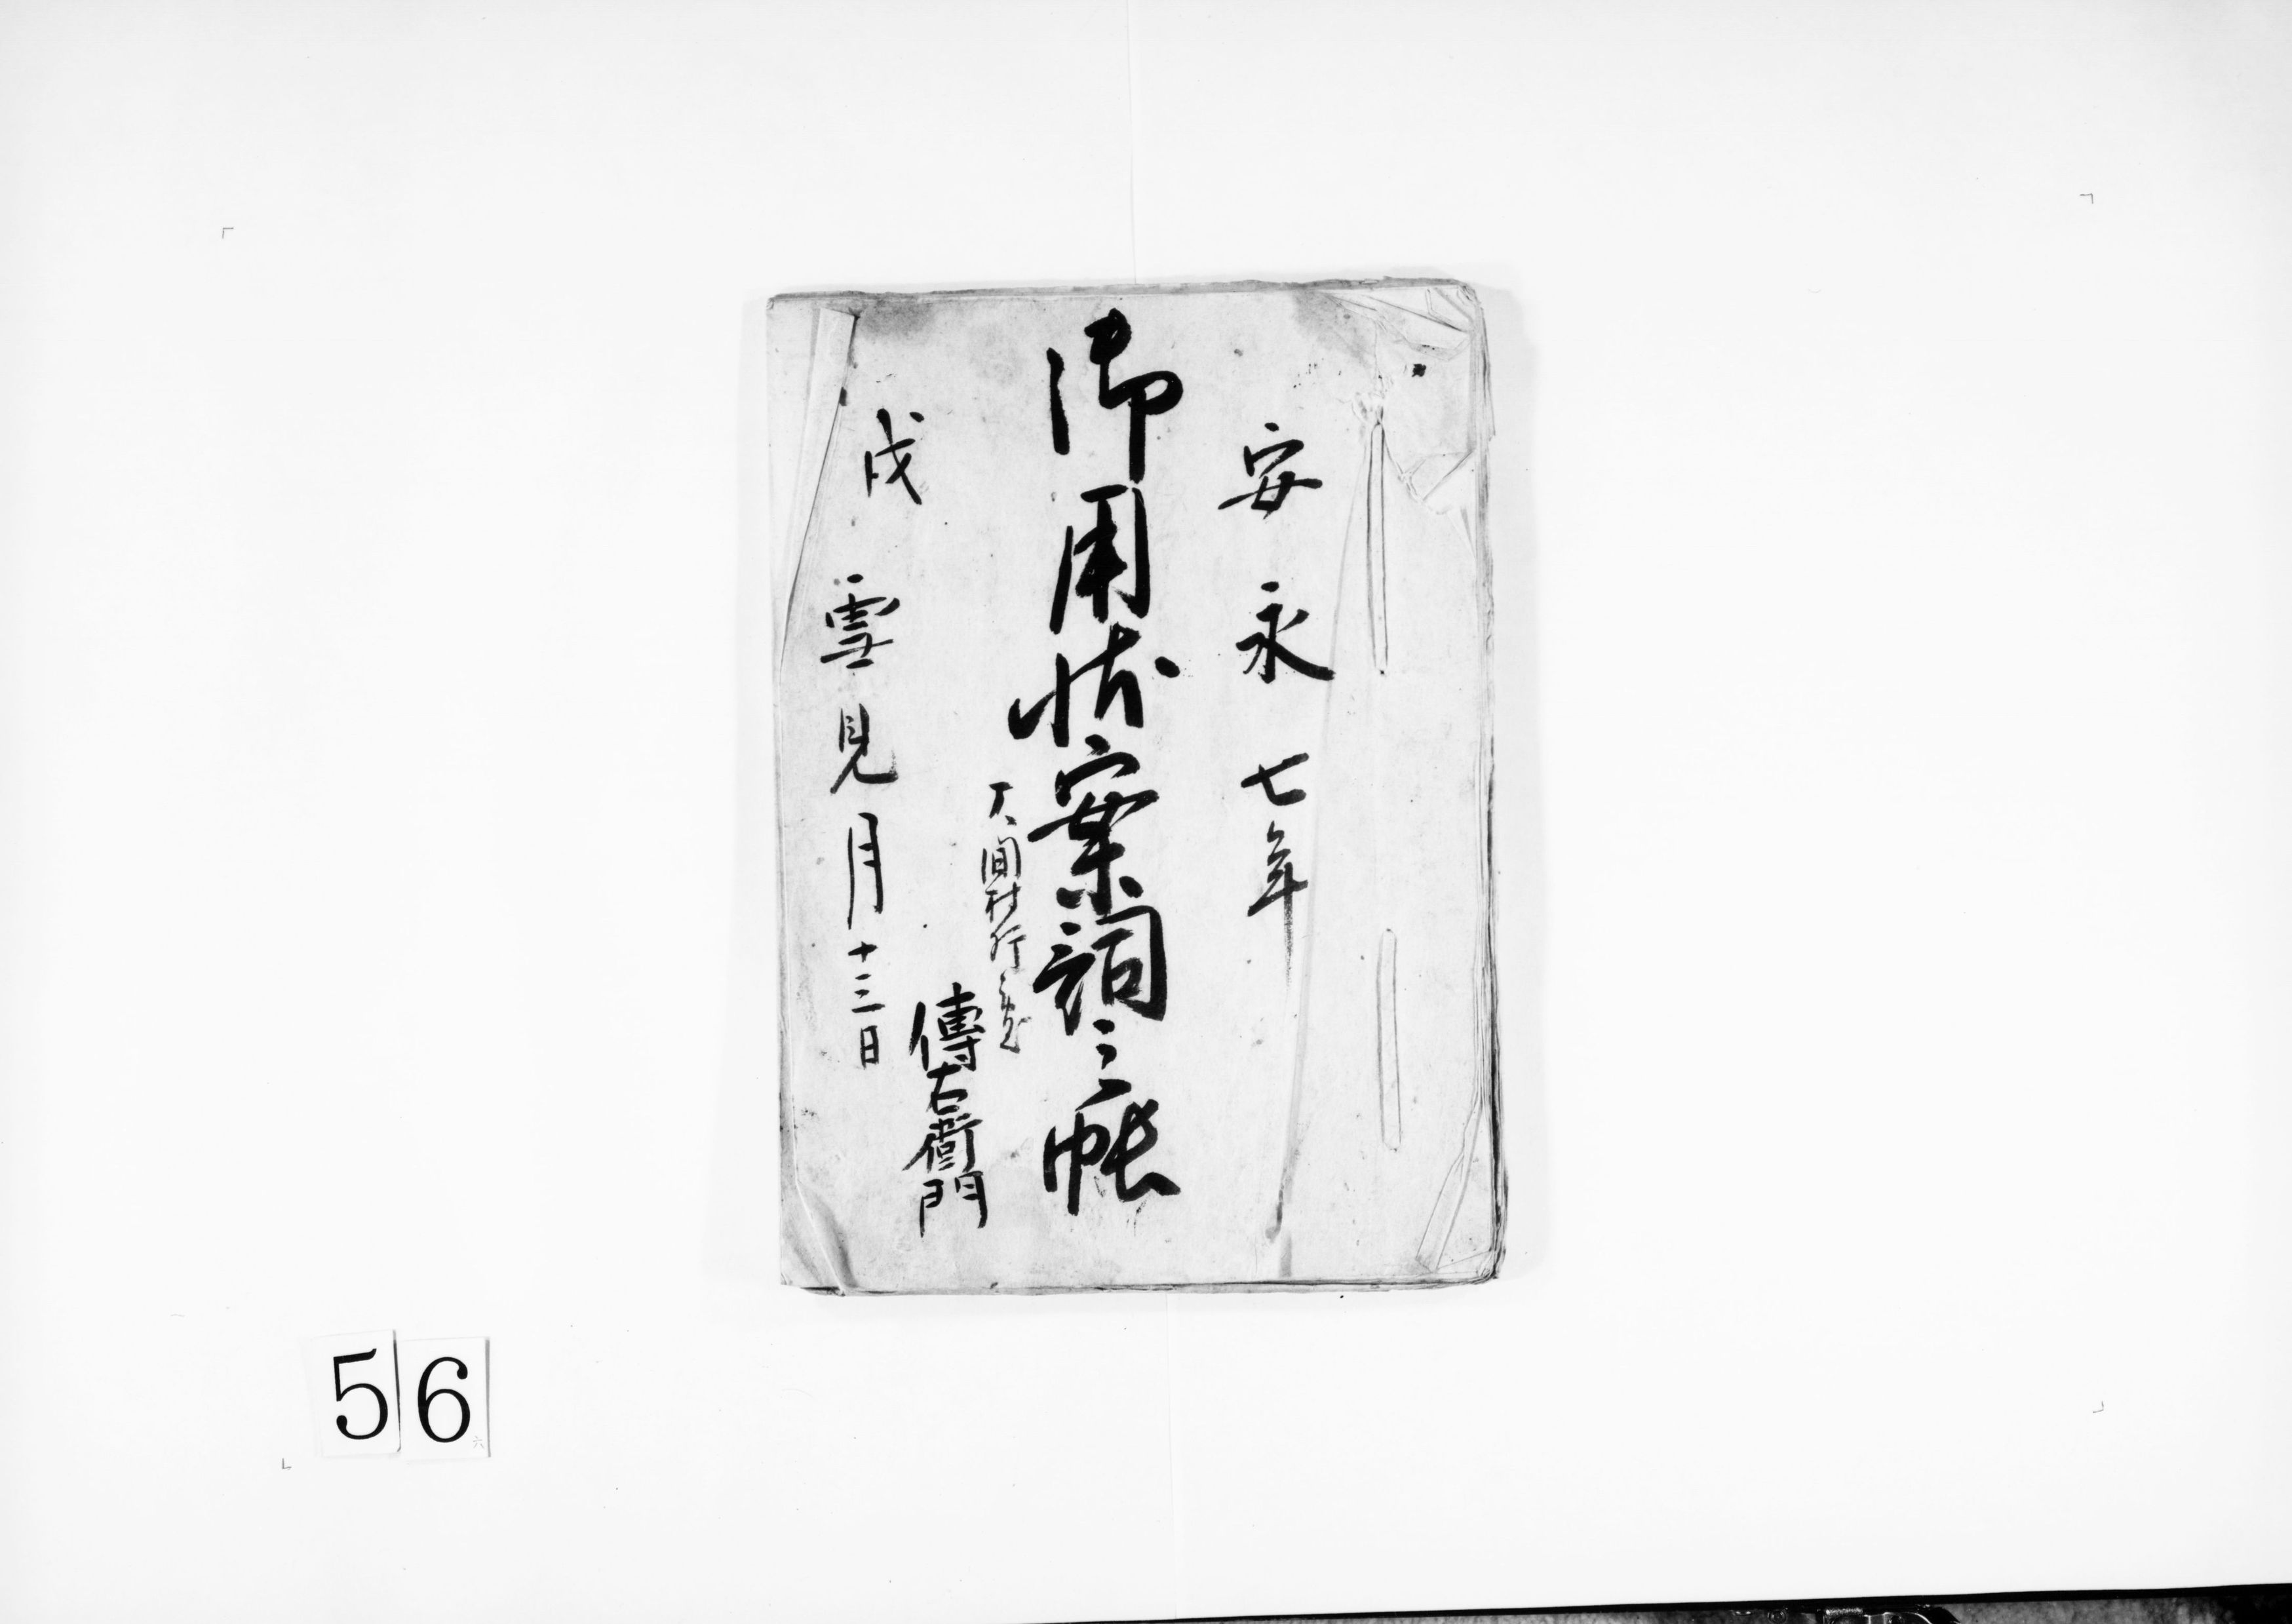 安永七年
御用状案詞之帳
大間村行
傳右衛門
戌 雪見月十三日
56
六